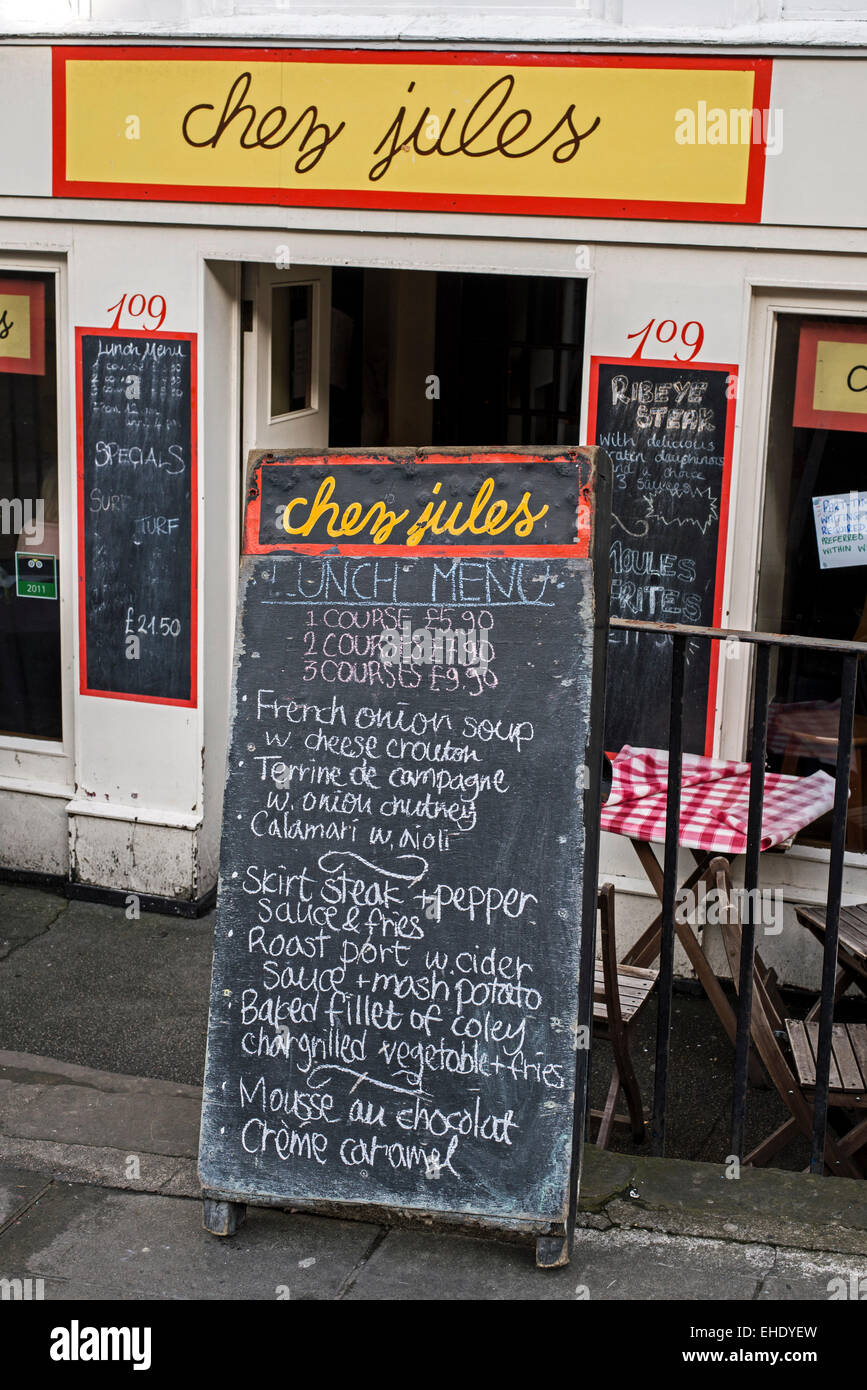 chez jules
109
Lunch Menu
SPECIALS
SURF
TURF
£21.50
2011
109
RIBEYE
STEAK
with delicious
and a choice
3 sauces
MOULES
FRITES
chez jules
LUNCH MENU
1 COURSE £5.90
2 COURSES £7.90
3 COURSES £9.90
· French onion soup
w. cheese crouton
· Terrine de campagne
w. onion chutney
· Calamari w. Aioli
· Skirt steak + pepper
sauce & fries
· Roast pork w. cider
sauce + mash potato
· Baked fillet of coley
chargrilled vegetable + fries
· Mousse au chocolat
· Crème caramel
PREFERRED
alamy
alamy stock photo
EHDYEW
www.alamy.com